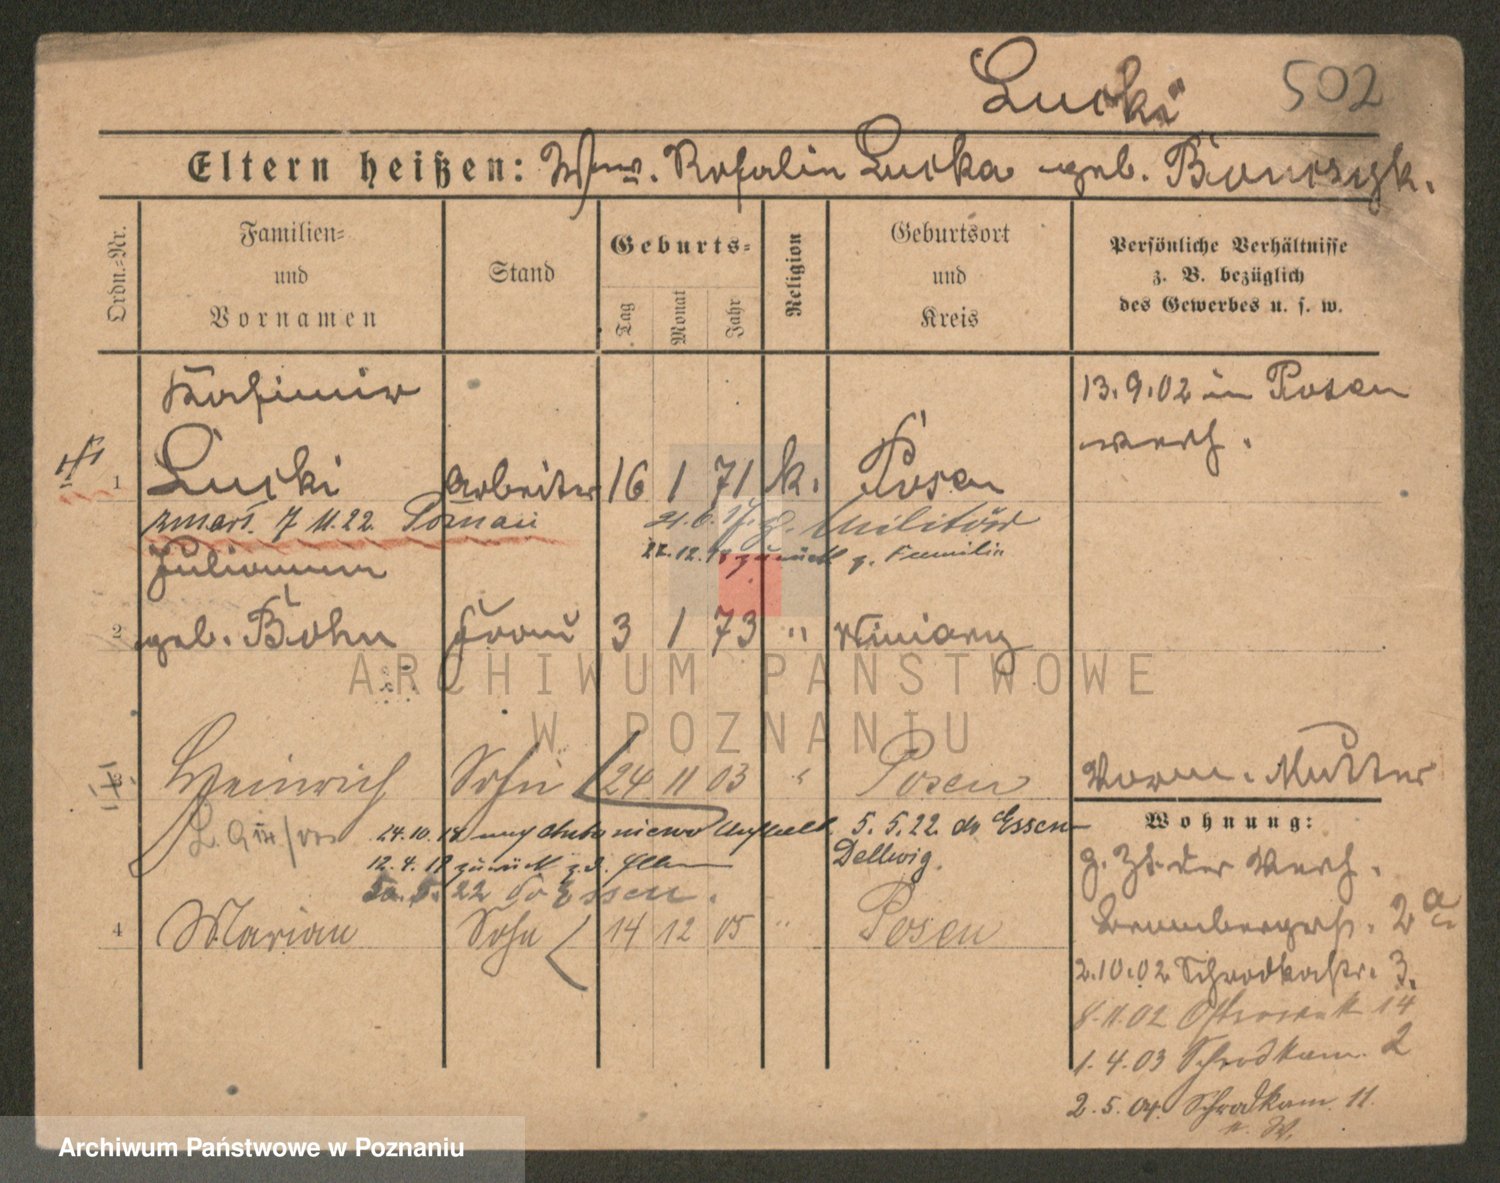 Lucki 502
Eltern heißen: Wwe. Rosalin Lucka geb. Bonczyk.
Ordn.-Nr.
Familien-
und
Vornamen
Stand
Geburts-
Tag
Monat
Jahr
Religion
Geburtsort
und
Kreis
Persönliche Verhältnisse
z. B. bezüglich
des Gewerbes u. s. w.
Kasimir
13.9.02 in Posen
verh.
1 Lucki Arbeiter 16 1 71 k. Posen
zmarł 7 11.22. Poznań
21.6. z. Militär
22.12.18 zurück z. Familie
Julianna
2 geb. Bohn Frau 3 1 73 " Winiary
ARCHIWUM PAŃSTWOWE
W POZNANIU
Heinrich Sohn 24 11 03 " Posen
Vorm. Mutter
Wohnung:
14.10.18 nach 5.5.22 do Essen
Dellwig.
12.4.19 zurück z. d.
22 do Essen.
z. Zt. der Verh.
4 Marian Sohn 14 12 05 " Posen
Brombergerstr. 2a
2.10.02 Schrodkastr. 3.
8.11.02 Ostrowek 14
1.4.03 Schrodkam. 2
2.5.04. Schrodkam. 11.
Archiwum Państwowe w Poznaniu